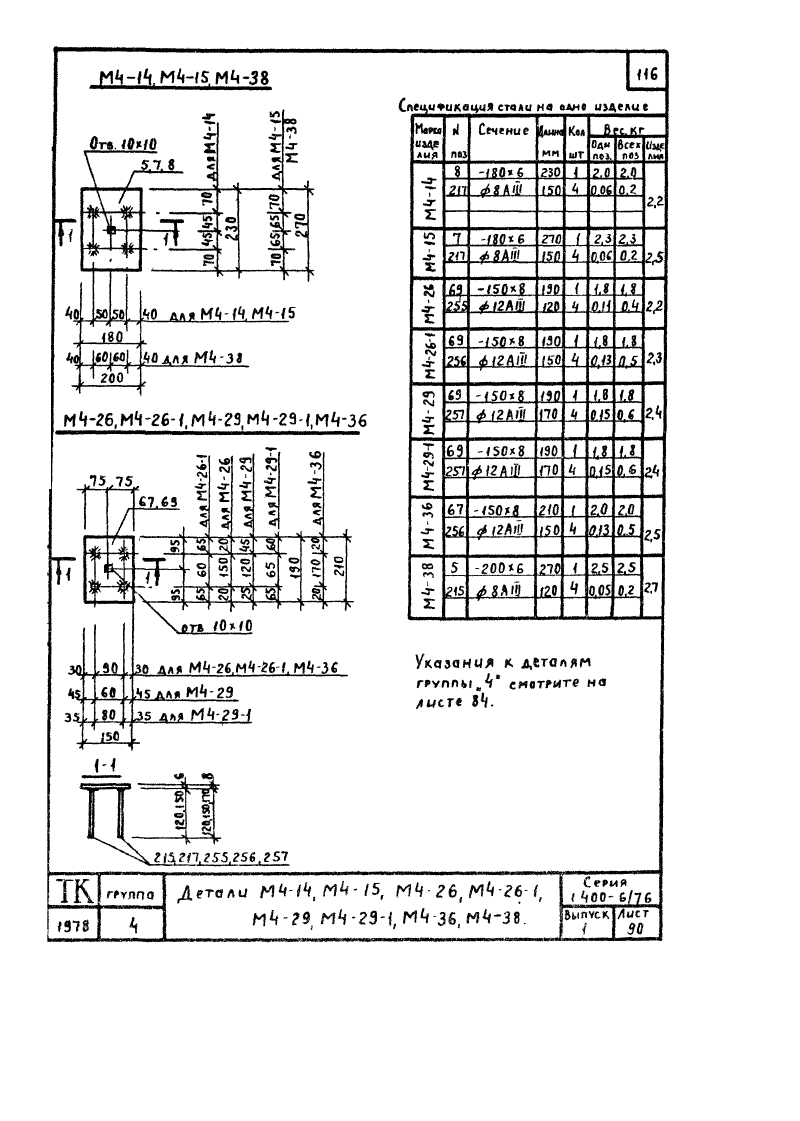 116
М4-14, М4-15, М4-38
Отв. 10×10
5,7,8
для М4-14
для М4-15
М4-38
70 45 45 70
230
70 65 65 70
270
1 1
40 50 50 40 для М4-14, М4-15
180
40 60 60 40 для М4-38
200
М4-26, М4-26-1, М4-29, М4-29-1, М4-36
75 75
67,69
для М4-26-1
для М4-26
для М4-29
для М4-29-1
для М4-36
95 95
65 60 65
20 150 20
45 120 25
60 65 65
190
20 170 20
210
1 1
отв 10×10
30 90 30 для М4-26, М4-26-1, М4-36
45 60 45 для М4-29
35 80 35 для М4-29-1
150
1-1
120,150 6
120,150,170 8
215,217,255,256,257
Спецификация стали на одно изделие
Марка изделия N поз Сечение Длина мм Кол шт Вес, кг
Одн поз. Всех поз Изделия
М4-14 8 -180×6 230 1 2,0 2,0 2,2
217 ϕ8АIII 150 4 0,06 0,2
М4-15 7 -180×6 270 1 2,3 2,3 2,5
217 ϕ8АIII 150 4 0,06 0,2
М4-26 69 -150×8 190 1 1,8 1,8 2,2
255 ϕ12АIII 120 4 0,11 0,4
М4-26-1 69 -150×8 190 1 1,8 1,8 2,3
256 ϕ12АIII 150 4 0,13 0,5
М4-29 69 -150×8 190 1 1,8 1,8 2,4
257 ϕ12АIII 170 4 0,15 0,6
М4-29-1 69 -150×8 190 1 1,8 1,8 2,4
257 ϕ12АIII 170 4 0,15 0,6
М4-36 67 -150×8 210 1 2,0 2,0 2,5
256 ϕ12АIII 150 4 0,13 0,5
М4-38 5 -200×6 270 1 2,5 2,5 2,7
215 ϕ8АIII 120 4 0,05 0,2
Указания к деталям
группы „4" смотрите на
листе 84.
ТК группа
1978 4
Детали М4-14, М4-15, М4-26, М4-26-1,
М4-29, М4-29-1, М4-36, М4-38.
Серия
1400-6/76
Выпуск 1
Лист 90